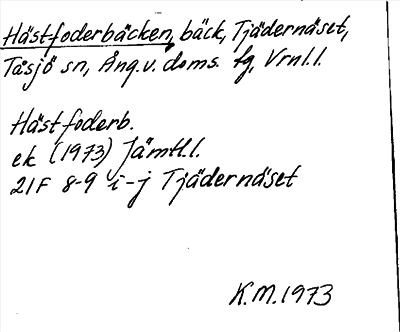 Hästfoderbäcken, bäck, Tjädernäset,
Tåsjö sn, Ång.v. doms. tg, Vrnl.l.
Hästfoderb.
ek (1973) Jämtl.l.
21F 8-9 i-j Tjädernäset
K.M.1973